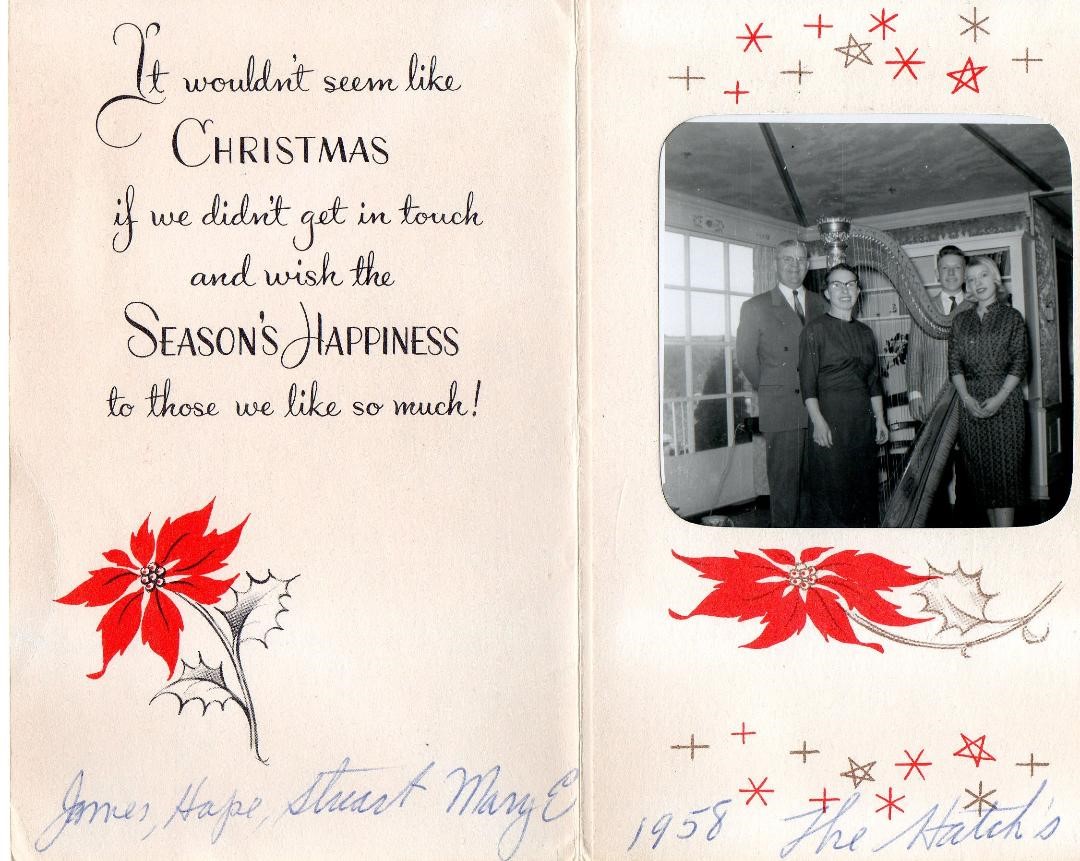 It wouldn't seem like
CHRISTMAS
if we didn't get in touch
and wish the
SEASON'S HAPPINESS
to those we like so much!
James, Hope, Stuart Mary E
1958 The Hatch's